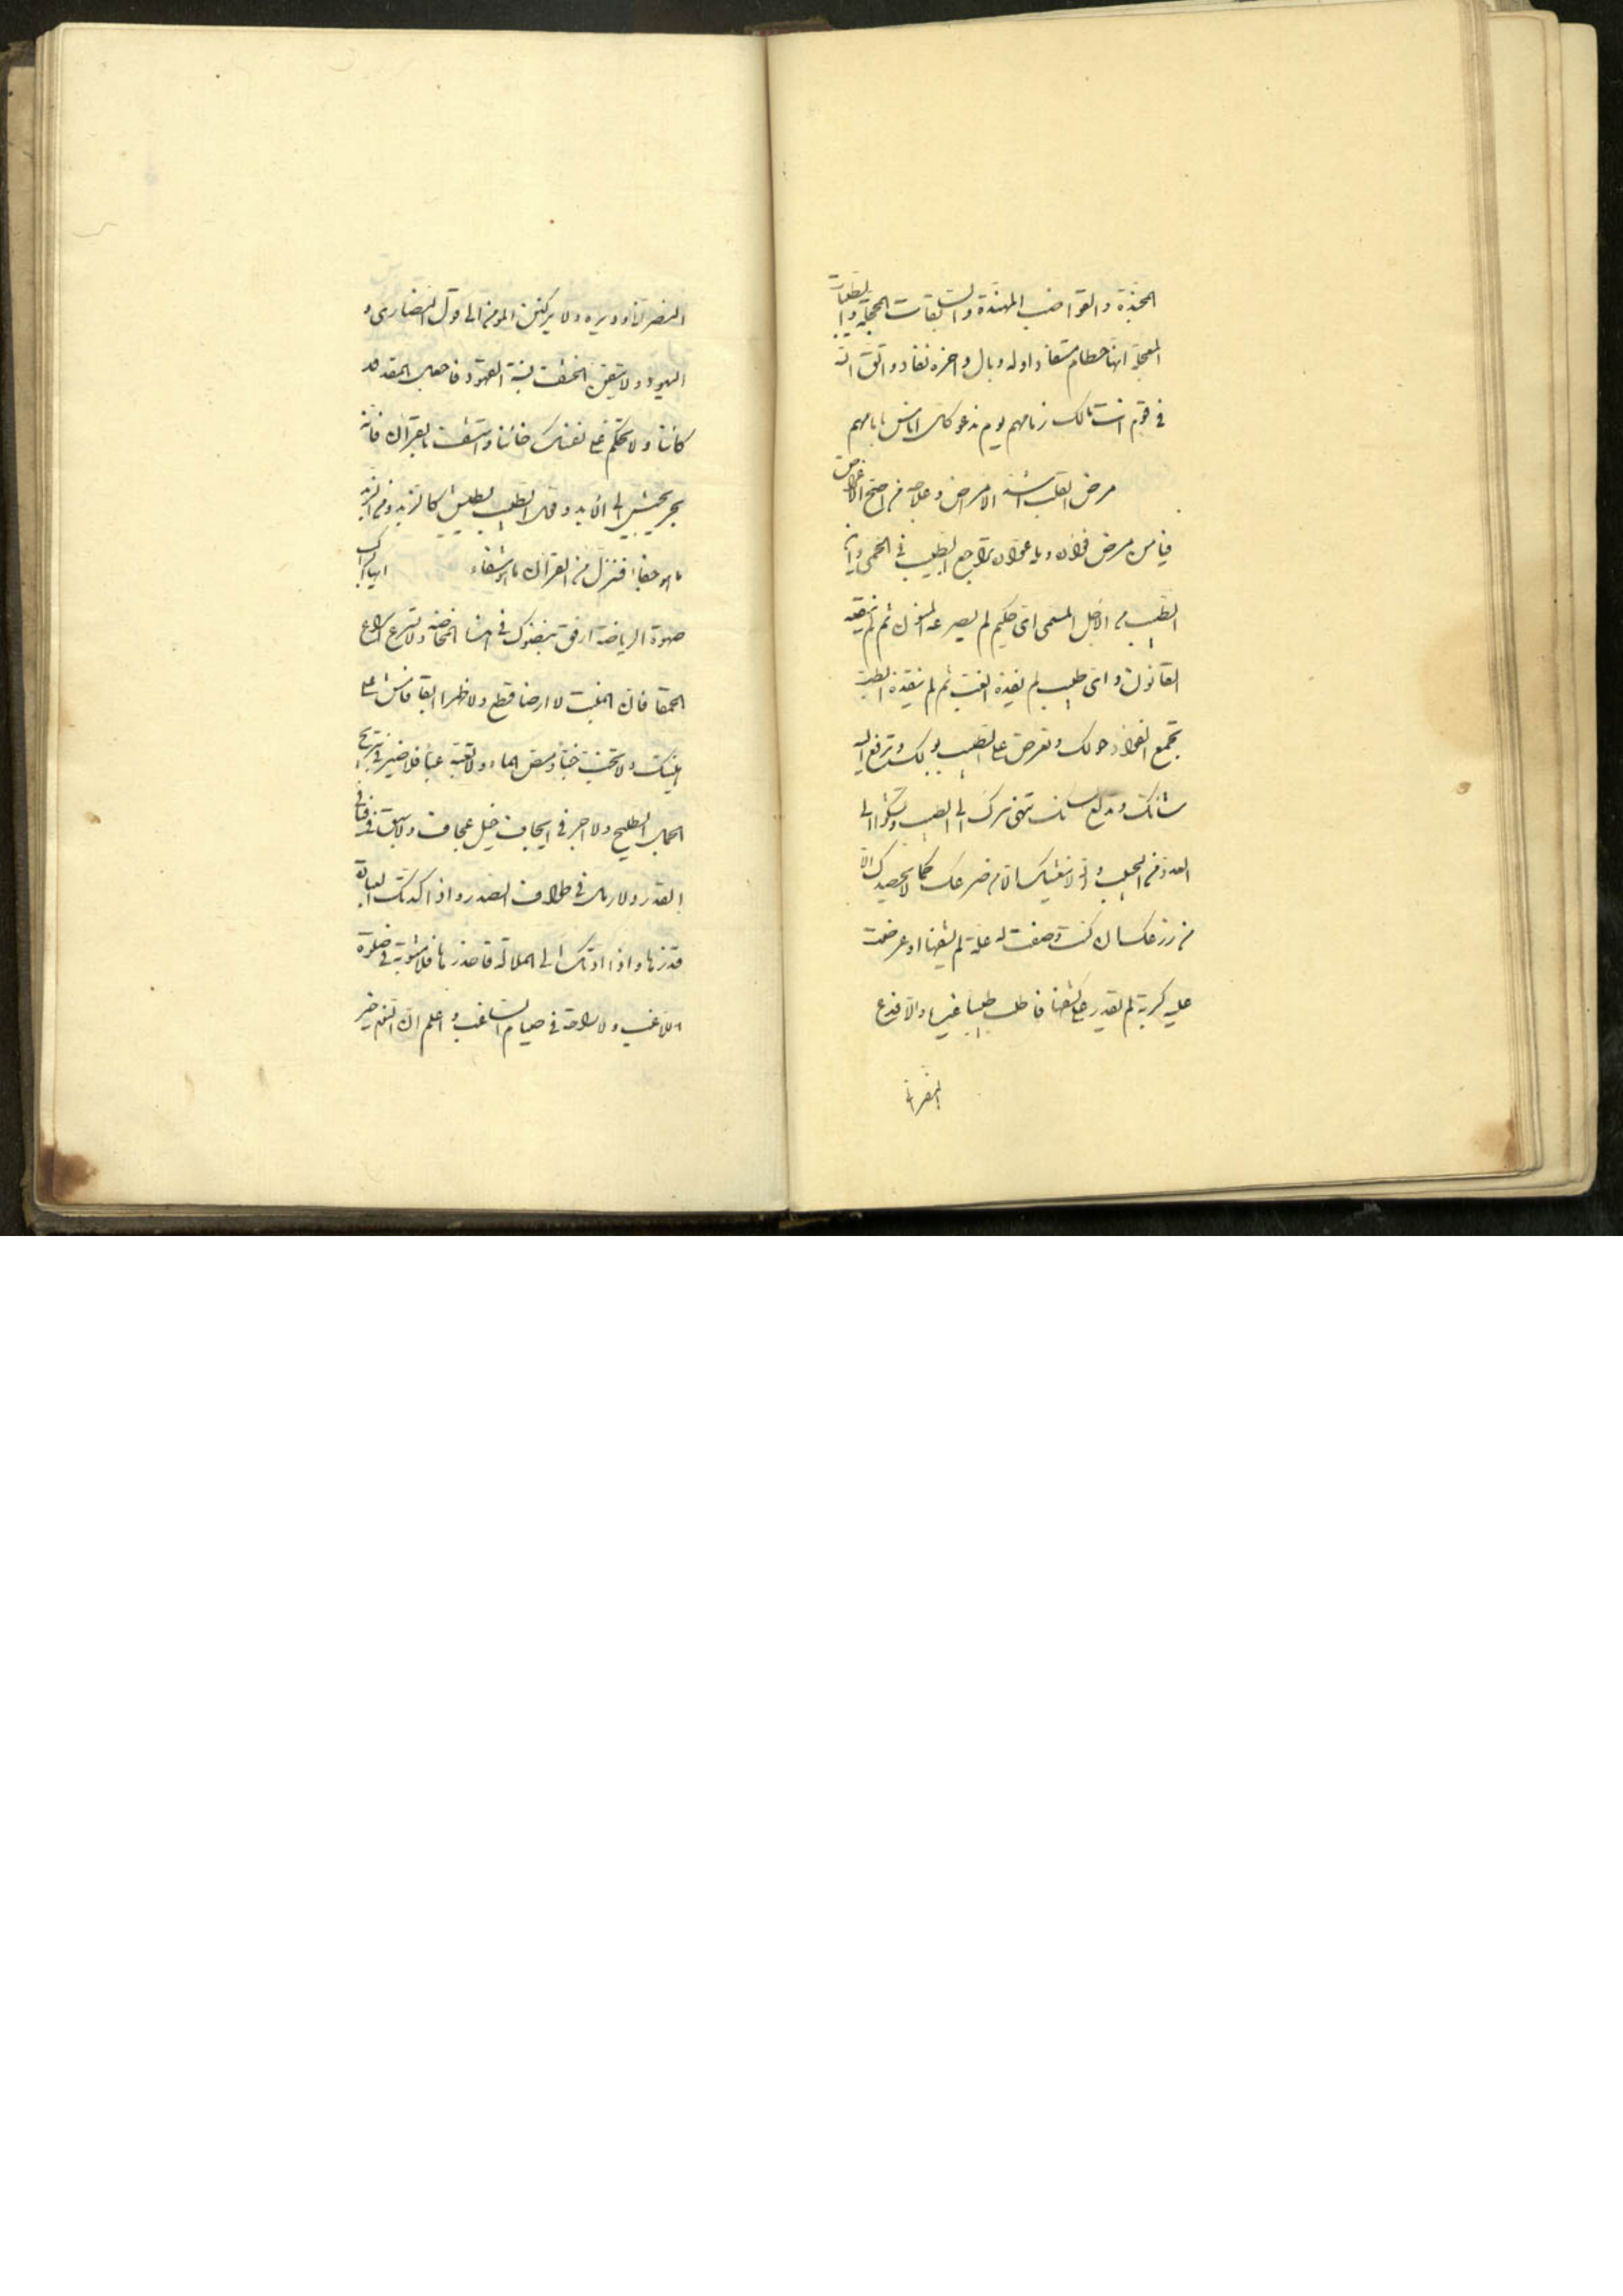 المجذة والقواضب المهندة والسابقات المحجلة والطيبات
المعجلة انها حطام مستعاد اوله وبال واخره نفاد واتق الله
في قوم انت مالك زمامهم يوم ندعو كل اناس بامامهم
مرض القلب اشد الامراض وعلاجه من اصح الاغراض
فيا من مرض فؤاده وبلاه عواده تراجع الطبيب في الحمى وان
الطبيب من الاجل المسمى اي حكيم لم يصرعه المنون ثم لم ينفعه
القانون واي طبيب لم نفيذه الغب ثم لم ينقذه الطب
تجمع العواد حولك وتعرض على الطبيب بولك وترفع اليه
شانك وتدلع لسانك تنهى سرك الى الطبيب وتشكو الى
العدو من الحبيب والله لا يغنيك الا من ضرعك كما لا يحصدك الا
من زرعك ان كنت وصفت له علة لم يشفها او عرضت
عليه كربة لم يقدر على كشفها فاطلب طبيبا غيره والا فدع
النصراني
النصراني وديره ولا يركنن المؤمن الى قول النصارى و
اليهود ولا يثقن الخشف بنية الفهود فاجعل المقدر
كائنا ولا تحكم على نفسك خائنا واستشف بالقران فانه
يجريحيش الى الابد وقول الطبيب يطيش كالزبد فاما الزبد
فيذهب جفاء وننزل من القران ما هو شفاء ايها الراكب
صهوة الرياضة ارفق بنضوك في هذه المخاضة ولا تسرع اسراع
الحمقا فان المنبت لا ارضا قطع ولا ظهرا ابقى فامش على
هينتك ولا تخب خبا ومص الماء ولا تعبه عبا فلا خير في تبريح
الجمل الطليح ولا اجر في ايجاف خيل عجاف ولا سبق في
القدر ولا رمل في طواف الصدر واذا اكدتك العبادة
فذرها واذا ادتك الى الملالة فاحذرها فلا مثوبة في صلوة
اللاغب ولا راحة في صيام الساغب واعلم ان النوم خير